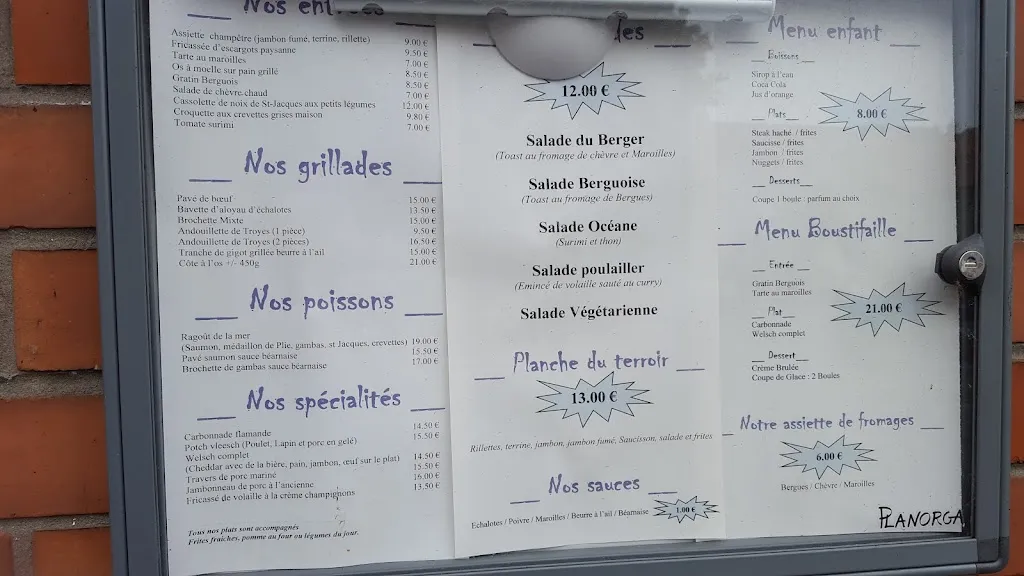 Nos
Assiette champêtre (jambon fumé, terrine, rillette) 9.00 €
Fricassée d'escargots paysanne 9.50 €
Tarte au maroilles 7.00 €
Os à moelle sur pain grillé 8.50 €
Gratin Berguois 8.50 €
Salade de chèvre chaud 7.00 €
Cassolette de noix de St-Jacques aux petits légumes 12.00 €
Croquette aux crevettes grises maison 9.80 €
Tomate surimi 7.00 €
Nos grillades
Pavé de bœuf 15.00 €
Bavette d'aloyau d'échalotes 13.50 €
Brochette Mixte 15.00 €
Andouillette de Troyes (1 pièce) 9.50 €
Andouillette de Troyes (2 pièces) 16.50 €
Tranche de gigot grillée beurre à l'ail 15.00 €
Côte à l'os +/- 450g 21.00 €
Nos poissons
Ragoût de la mer
(Saumon, médaillon de Plie, gambas, st Jacques, crevettes) 19.00 €
Pavé saumon sauce béarnaise 15.50 €
Brochette de gambas sauce béarnaise 17.00 €
Nos spécialités
Carbonnade flamande 14.50 €
Potch vleesch (Poulet, Lapin et porc en gelé) 15.50 €
Welsch complet
(Cheddar avec de la bière, pain, jambon, œuf sur le plat) 14.50 €
Travers de porc mariné 15.50 €
Jambonneau de porc à l'ancienne 16.00 €
Fricassé de volaille à la crème champignons 13.50 €
Tous nos plats sont accompagnés
Frites fraiches, pomme au four ou légumes du jour.
des
12.00 €
Salade du Berger
(Toast au fromage de chèvre et Maroilles)
Salade Berguoise
(Toast au fromage de Bergues)
Salade Océane
(Surimi et thon)
Salade poulailler
(Emincé de volaille sauté au curry)
Salade Végétarienne
Planche du terroir
13.00 €
Rillettes, terrine, jambon, jambon fumé, Saucisson, salade et frites
Nos sauces
Echalotes / Poivre / Maroilles / Beurre à l'ail / Béarnaise 1.00 €
Menu enfant
Boissons
Sirop à l'eau
Coca Cola
Jus d'orange
Plats
8.00 €
Steak haché / frites
Saucisse / frites
Jambon / frites
Nuggets / frites
Desserts
Coupe 1 boule : parfum au choix
Menu Boustifaille
Entrée
Gratin Berguois
Tarte au maroilles
21.00 €
Plat
Carbonnade
Welsch complet
Dessert
Crème Brulée
Coupe de Glace : 2 Boules
Notre assiette de fromages
6.00 €
Bergues / Chèvre / Maroilles
PLANORGA